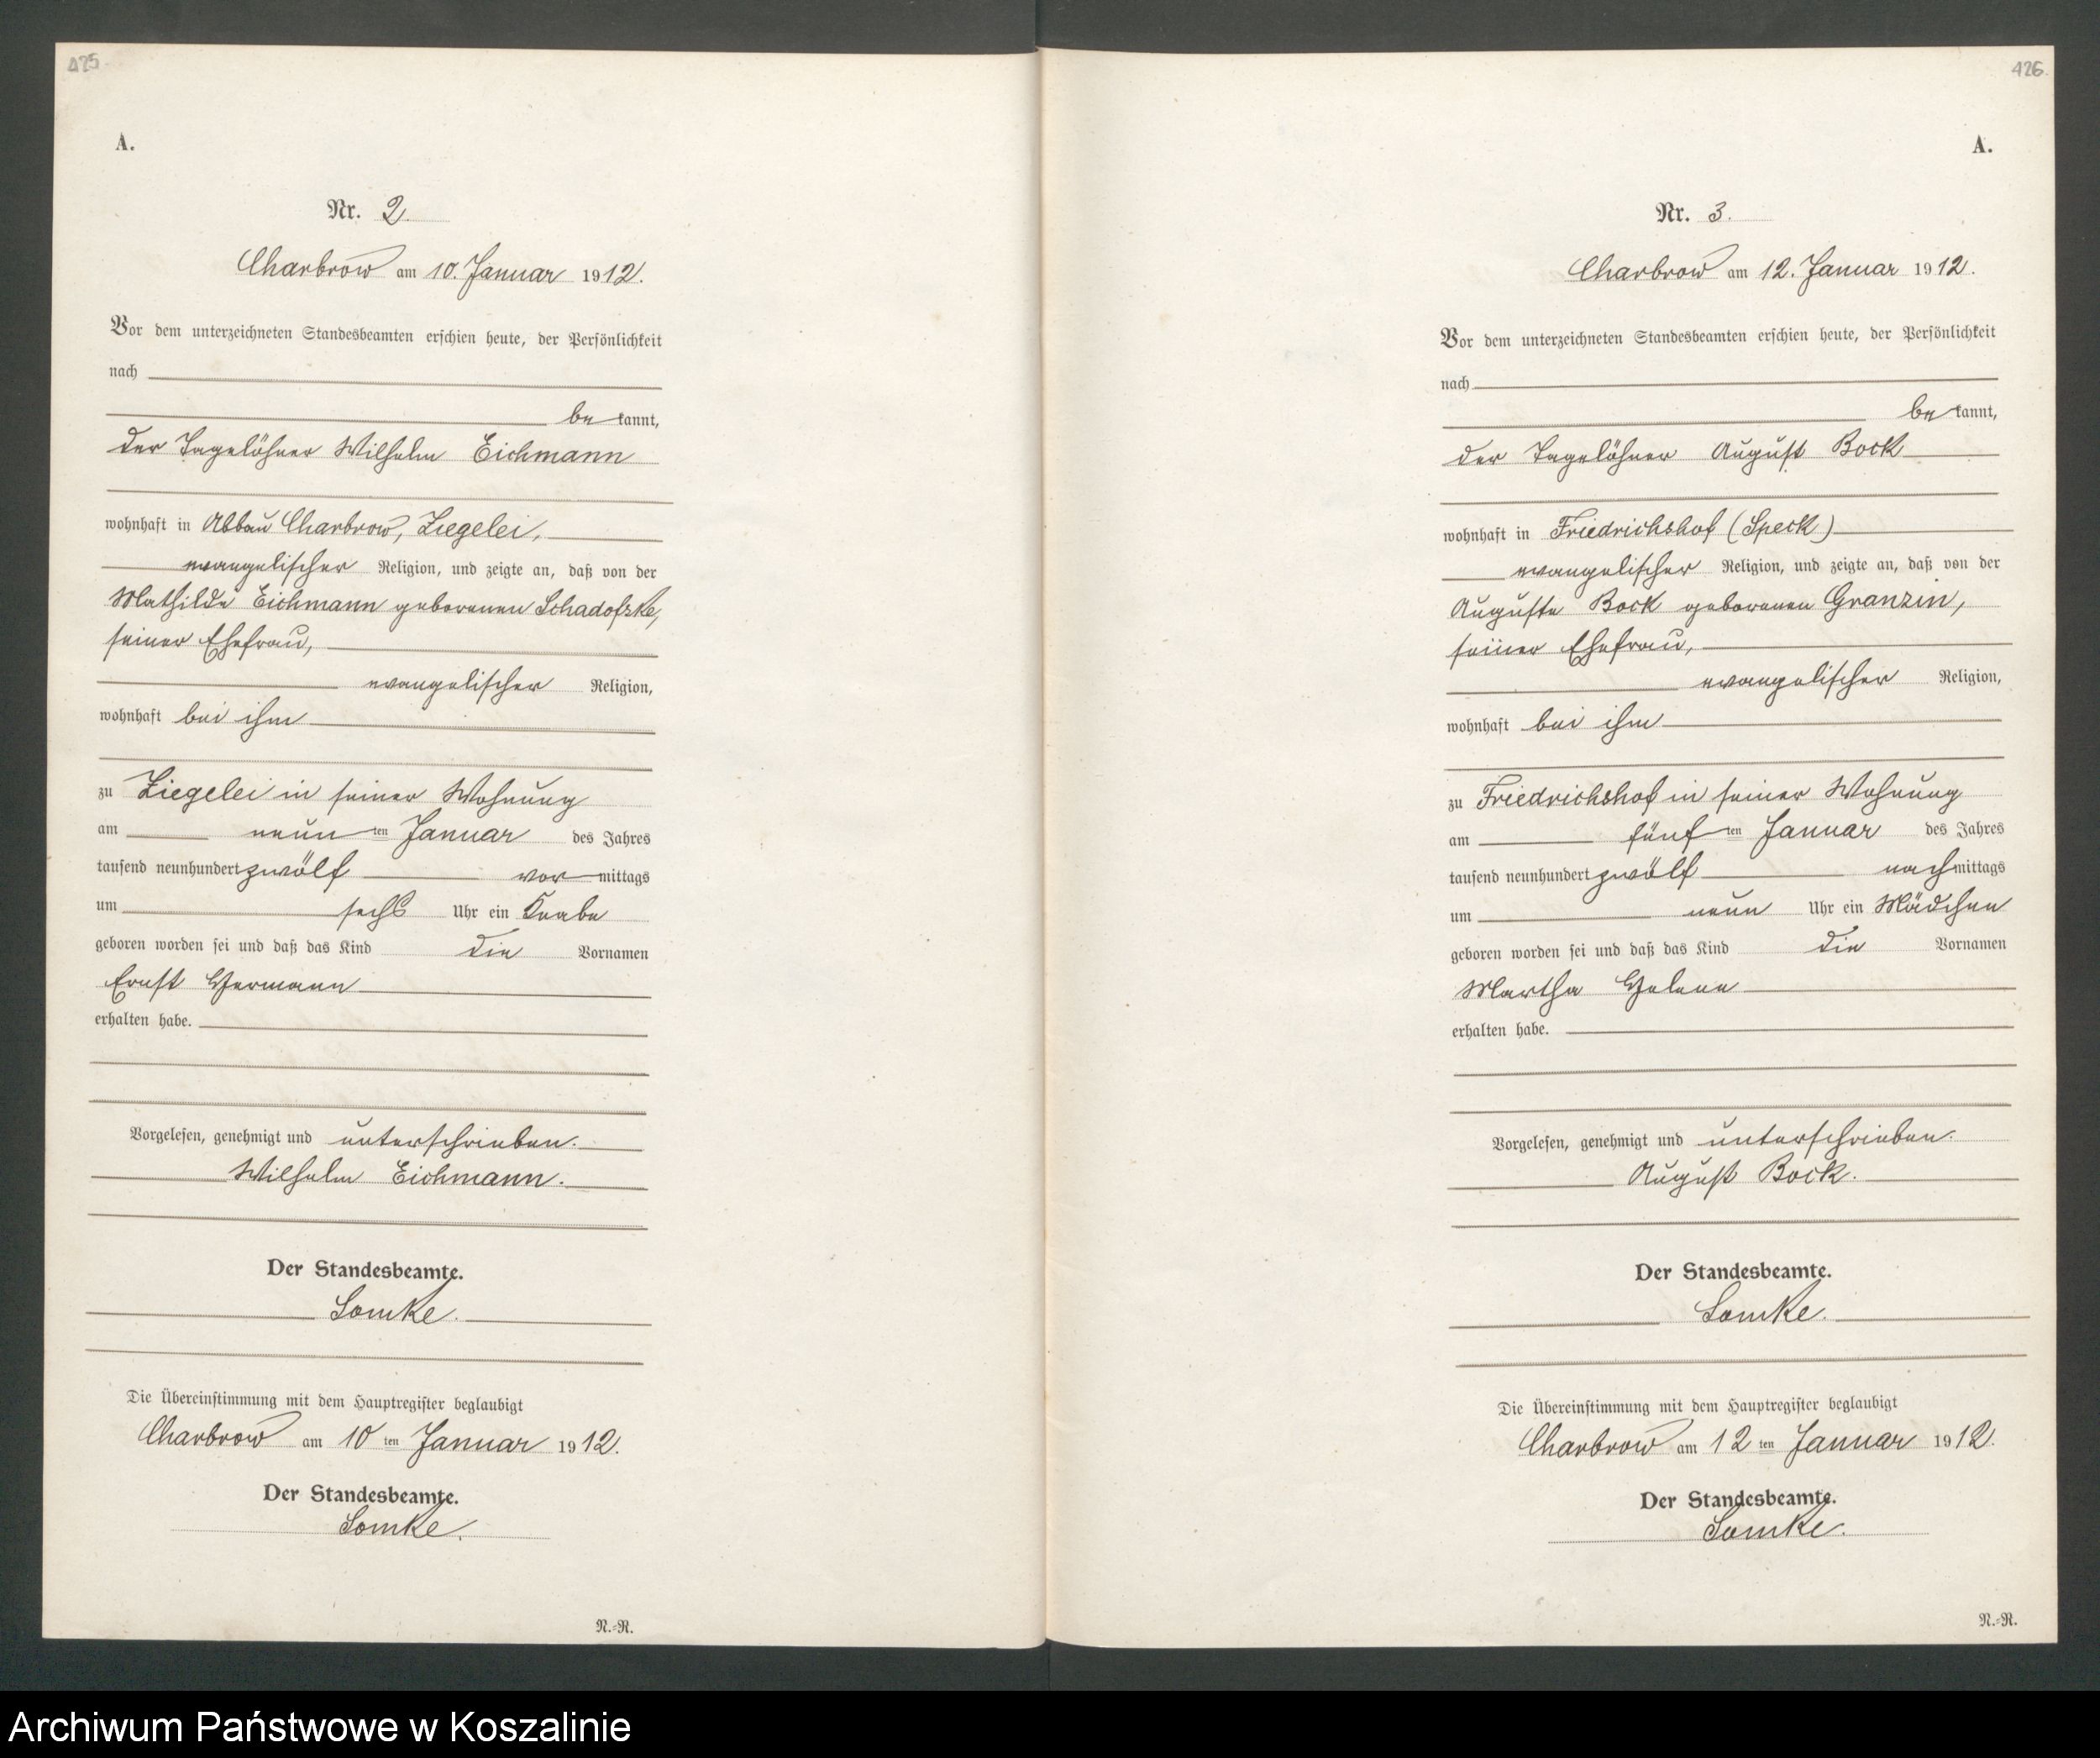 425
A.
Nr. 2.
Charbrow am 10. Januar 1912.
Vor dem unterzeichneten Standesbeamten erschien heute, der Persönlichkeit
nach
be kannt,
der Tagelöhner Wilhelm Eichmann
wohnhaft in Abbau Charbrow, Ziegelei,
evangelischer Religion, und zeigte an, daß von der
Mathilde Eichmann geborenen Schadofske,
seiner Ehefrau,
evangelischer Religion,
wohnhaft bei ihm
zu Ziegelei in seiner Wohnung
am neun ten Januar des Jahres
tausend neunhundert zwölf vor mittags
um sechs Uhr ein Knabe
geboren worden sei und daß das Kind die Vornamen
Ernst Hermann
erhalten habe.
Vorgelesen, genehmigt und unterschrieben.
Wilhelm Eichmann.
Der Standesbeamte.
Lomke.
Die Übereinstimmung mit dem Hauptregister beglaubigt
Charbrow am 10 ten Januar 1912.
Der Standesbeamte.
Lomke.
N.-R.
426
A.
Nr. 3.
Charbrow am 12. Januar 1912.
Vor dem unterzeichneten Standesbeamten erschien heute, der Persönlichkeit
nach
be kannt,
der Tagelöhner August Bock
wohnhaft in Friedrichshof (Speck)
evangelischer Religion, und zeigte an, daß von der
Auguste Bock geborenen Granzin,
seiner Ehefrau,
evangelischer Religion,
wohnhaft bei ihm
zu Friedrichshof in seiner Wohnung
am fünf ten Januar des Jahres
tausend neunhundert zwölf nach mittags
um neun Uhr ein Mädchen
geboren worden sei und daß das Kind die Vornamen
Martha Helene
erhalten habe.
Vorgelesen, genehmigt und unterschrieben.
August Bock.
Der Standesbeamte.
Lomke.
Die Übereinstimmung mit dem Hauptregister beglaubigt
Charbrow am 12 ten Januar 1912.
Der Standesbeamte.
Lomke.
N.-R.
Archiwum Państwowe w Koszalinie